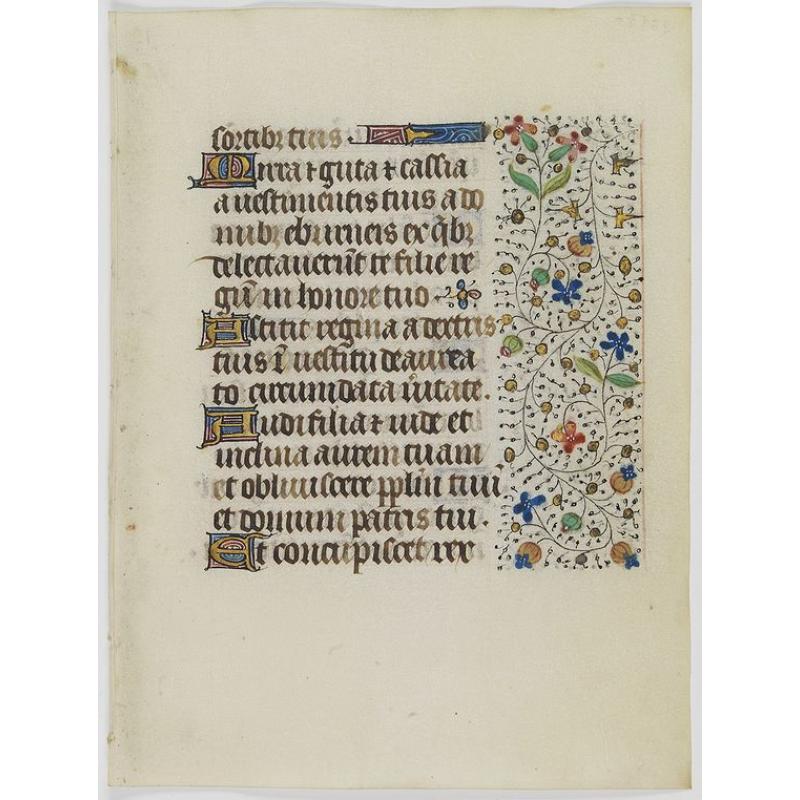 sortibꝫ tuis
Mirra ⁊ guta ⁊ cassia
a uestimentis tuis a do
mibꝫ eburneis ex q̄bꝫ
delectauerūt te filie re
gū in honore tuo
Astitit regina a dextris
tuis ī uestitu deaurea
to circumdata ūitate.
Audi filia ⁊ uide et
inclina aurem tuam
et obliuiscere pplm̄ tuū
et domum patris tui.
Et concupiscet rex